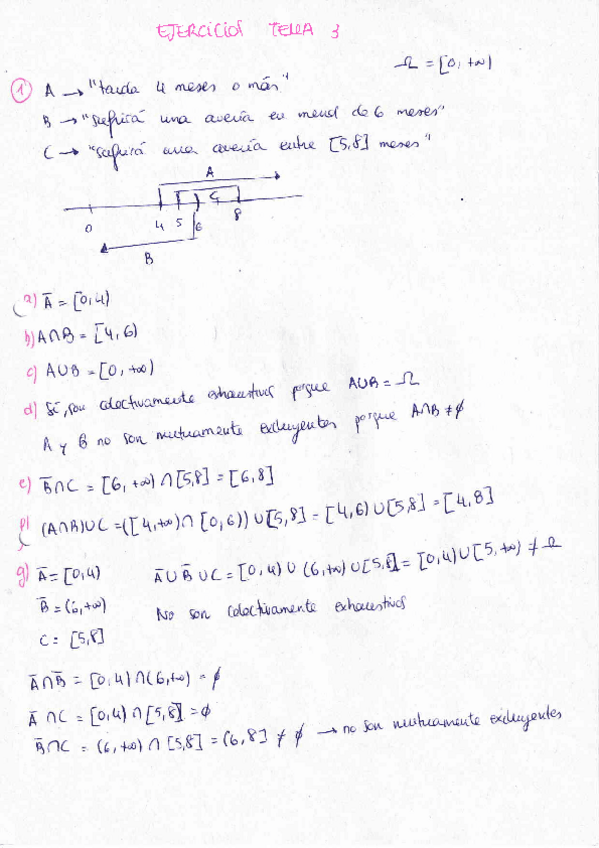 EJERCICIOS TEMA 3
Ω = [0, +∞)
1 A → "tarda 4 meses o más"
B → "sufrirá una avería en menos de 6 meses"
C → "sufrirá una avería entre [5,8] meses"
A
C
0 4 5 6 8
B
a) Ā = [0,4)
b) A∩B = [4,6)
c) A∪B = [0, +∞)
d) Sí, son colectivamente exhaustivos porque A∪B = Ω
A y B no son mutuamente excluyentes porque A∩B ≠ ∅
e) B̄∩C = [6, +∞) ∩ [5,8] = [6,8]
f) (A∩B)∪C = ([4,+∞) ∩ [0,6)) ∪ [5,8] = [4,6) ∪ [5,8] = [4,8]
g) Ā = [0,4) Ā∪B̄∪C = [0,4) ∪ (6,+∞) ∪ [5,8] = [0,4) ∪ [5,+∞) ≠ Ω
B̄ = (6,+∞) No son colectivamente exhaustivos
C = [5,8]
Ā∩B̄ = [0,4) ∩ (6,+∞) = ∅
Ā∩C = [0,4) ∩ [5,8] = ∅
B̄∩C = (6,+∞) ∩ [5,8] = (6,8] ≠ ∅ → no son mutuamente excluyentes